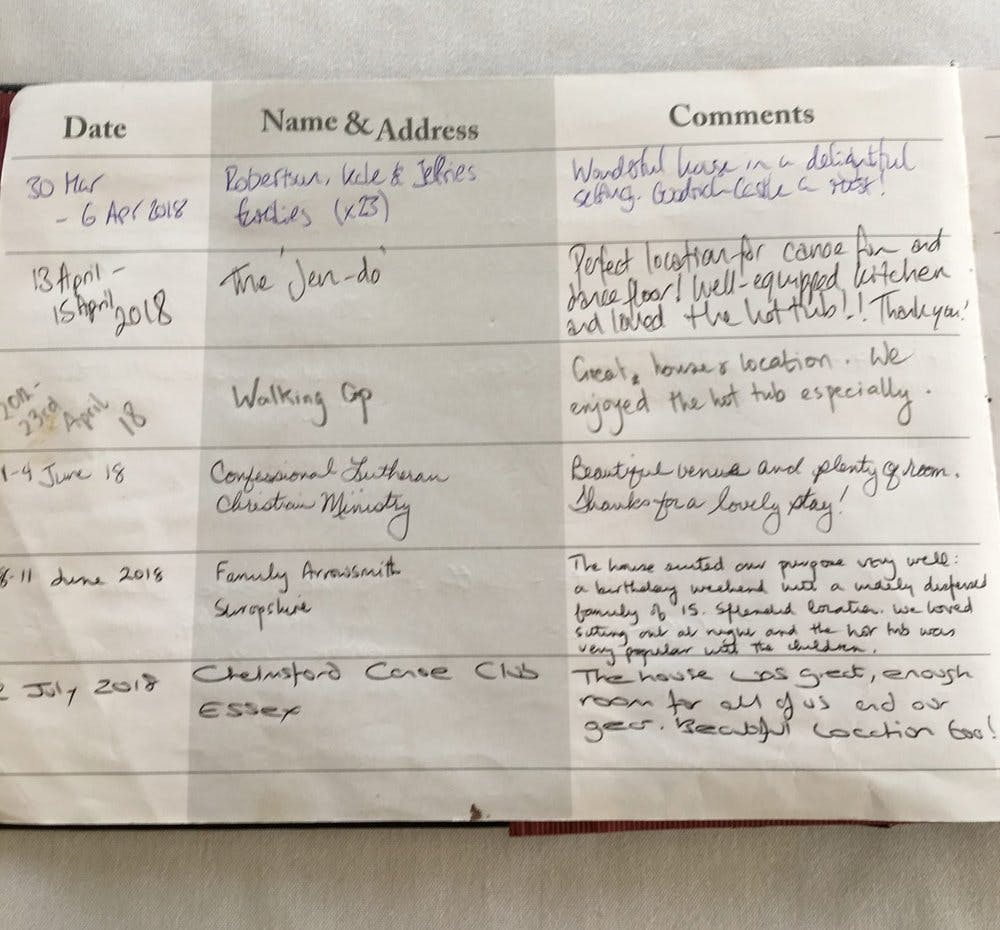 Date Name & Address Comments
30 Mar
- 6 Apr 2018
Robertson, & Jefferies
families (x23)
Wonderful house in a delightful
setting. Goodrich Castle a must!
13 April -
15 April
2018
The 'Jen-do'
Perfect location for canoe fun and
dance floor! Well-equipped kitchen
and loved the hot tub!! Thank you!
23rd April
18
Walking Gp
Great house & location. We
enjoyed the hot tub especially.
1-4 June 18
Confessional Lutheran
Christian Ministry
Beautiful venue and plenty of room.
Thanks for a lovely stay!
8-11 June 2018
Family Arrowsmith
Shropshire
The house suited our purpose very well:
a birthday weekend with a widely dispersed
family of 15. Splendid location. We loved
sitting out at night and the hot tub was
very popular with the children.
July 2018
Chelmsford Canoe Club
Essex
The house was great, enough
room for all of us and our
gear. Beautiful location too!